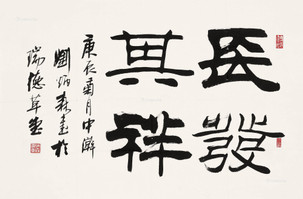 長發
其祥
庚辰菊月中澣
劉炳森書於
瑞德草堂